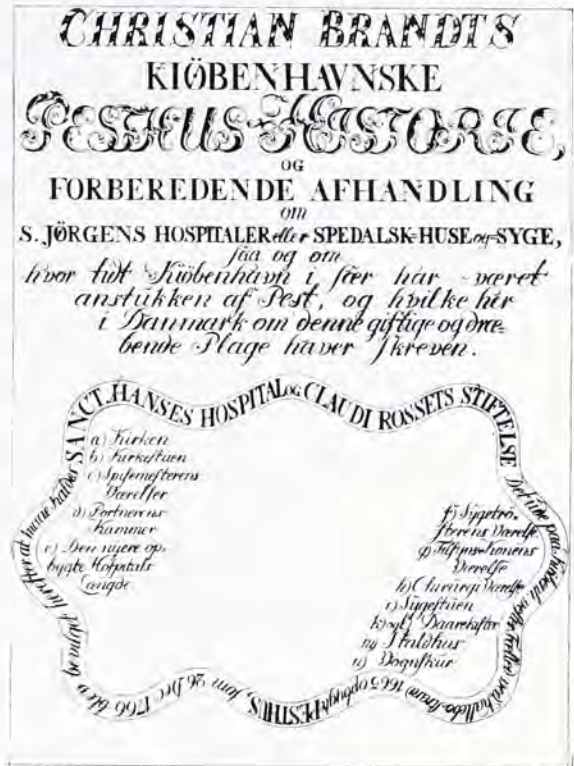 CHRISTIAN BRANDTS
KIÖBENHAVNSKE
PESTHUS-HISTORIE,
OG
FORBEREDENDE AFHANDLING
om
S. JÖRGENS HOSPITALER eller SPEDALSK-HUSE og -SYGE,
saa og om
hvor tidt Kiöbenhavn i sær har været
anstukken af Pest, og hvilke her
i Danmark om denne giftige og dræ-
bende Plage haver skreven.
SANCT. HANSES HOSPITAL og CLAUDI ROSSETS STIFTELSE
1665 opbygte PESTHUS, som, 26 Dec 1766 blev
herefter at maae kaldes
a) Kirken
b) Kirkestuen
c) Spisemesterens
Værelser
d) Portnerens
Kammer
e) Den nyere op-
bygte Hospitals
Længde
f) Sygetrö-
sterens Værelse
g) Tilsyns-Konens
Værelse
h) Chirurgi Værelse
i) Sygestuen
k) og l) Daarekister
m) Staldhus
n) Vognskur